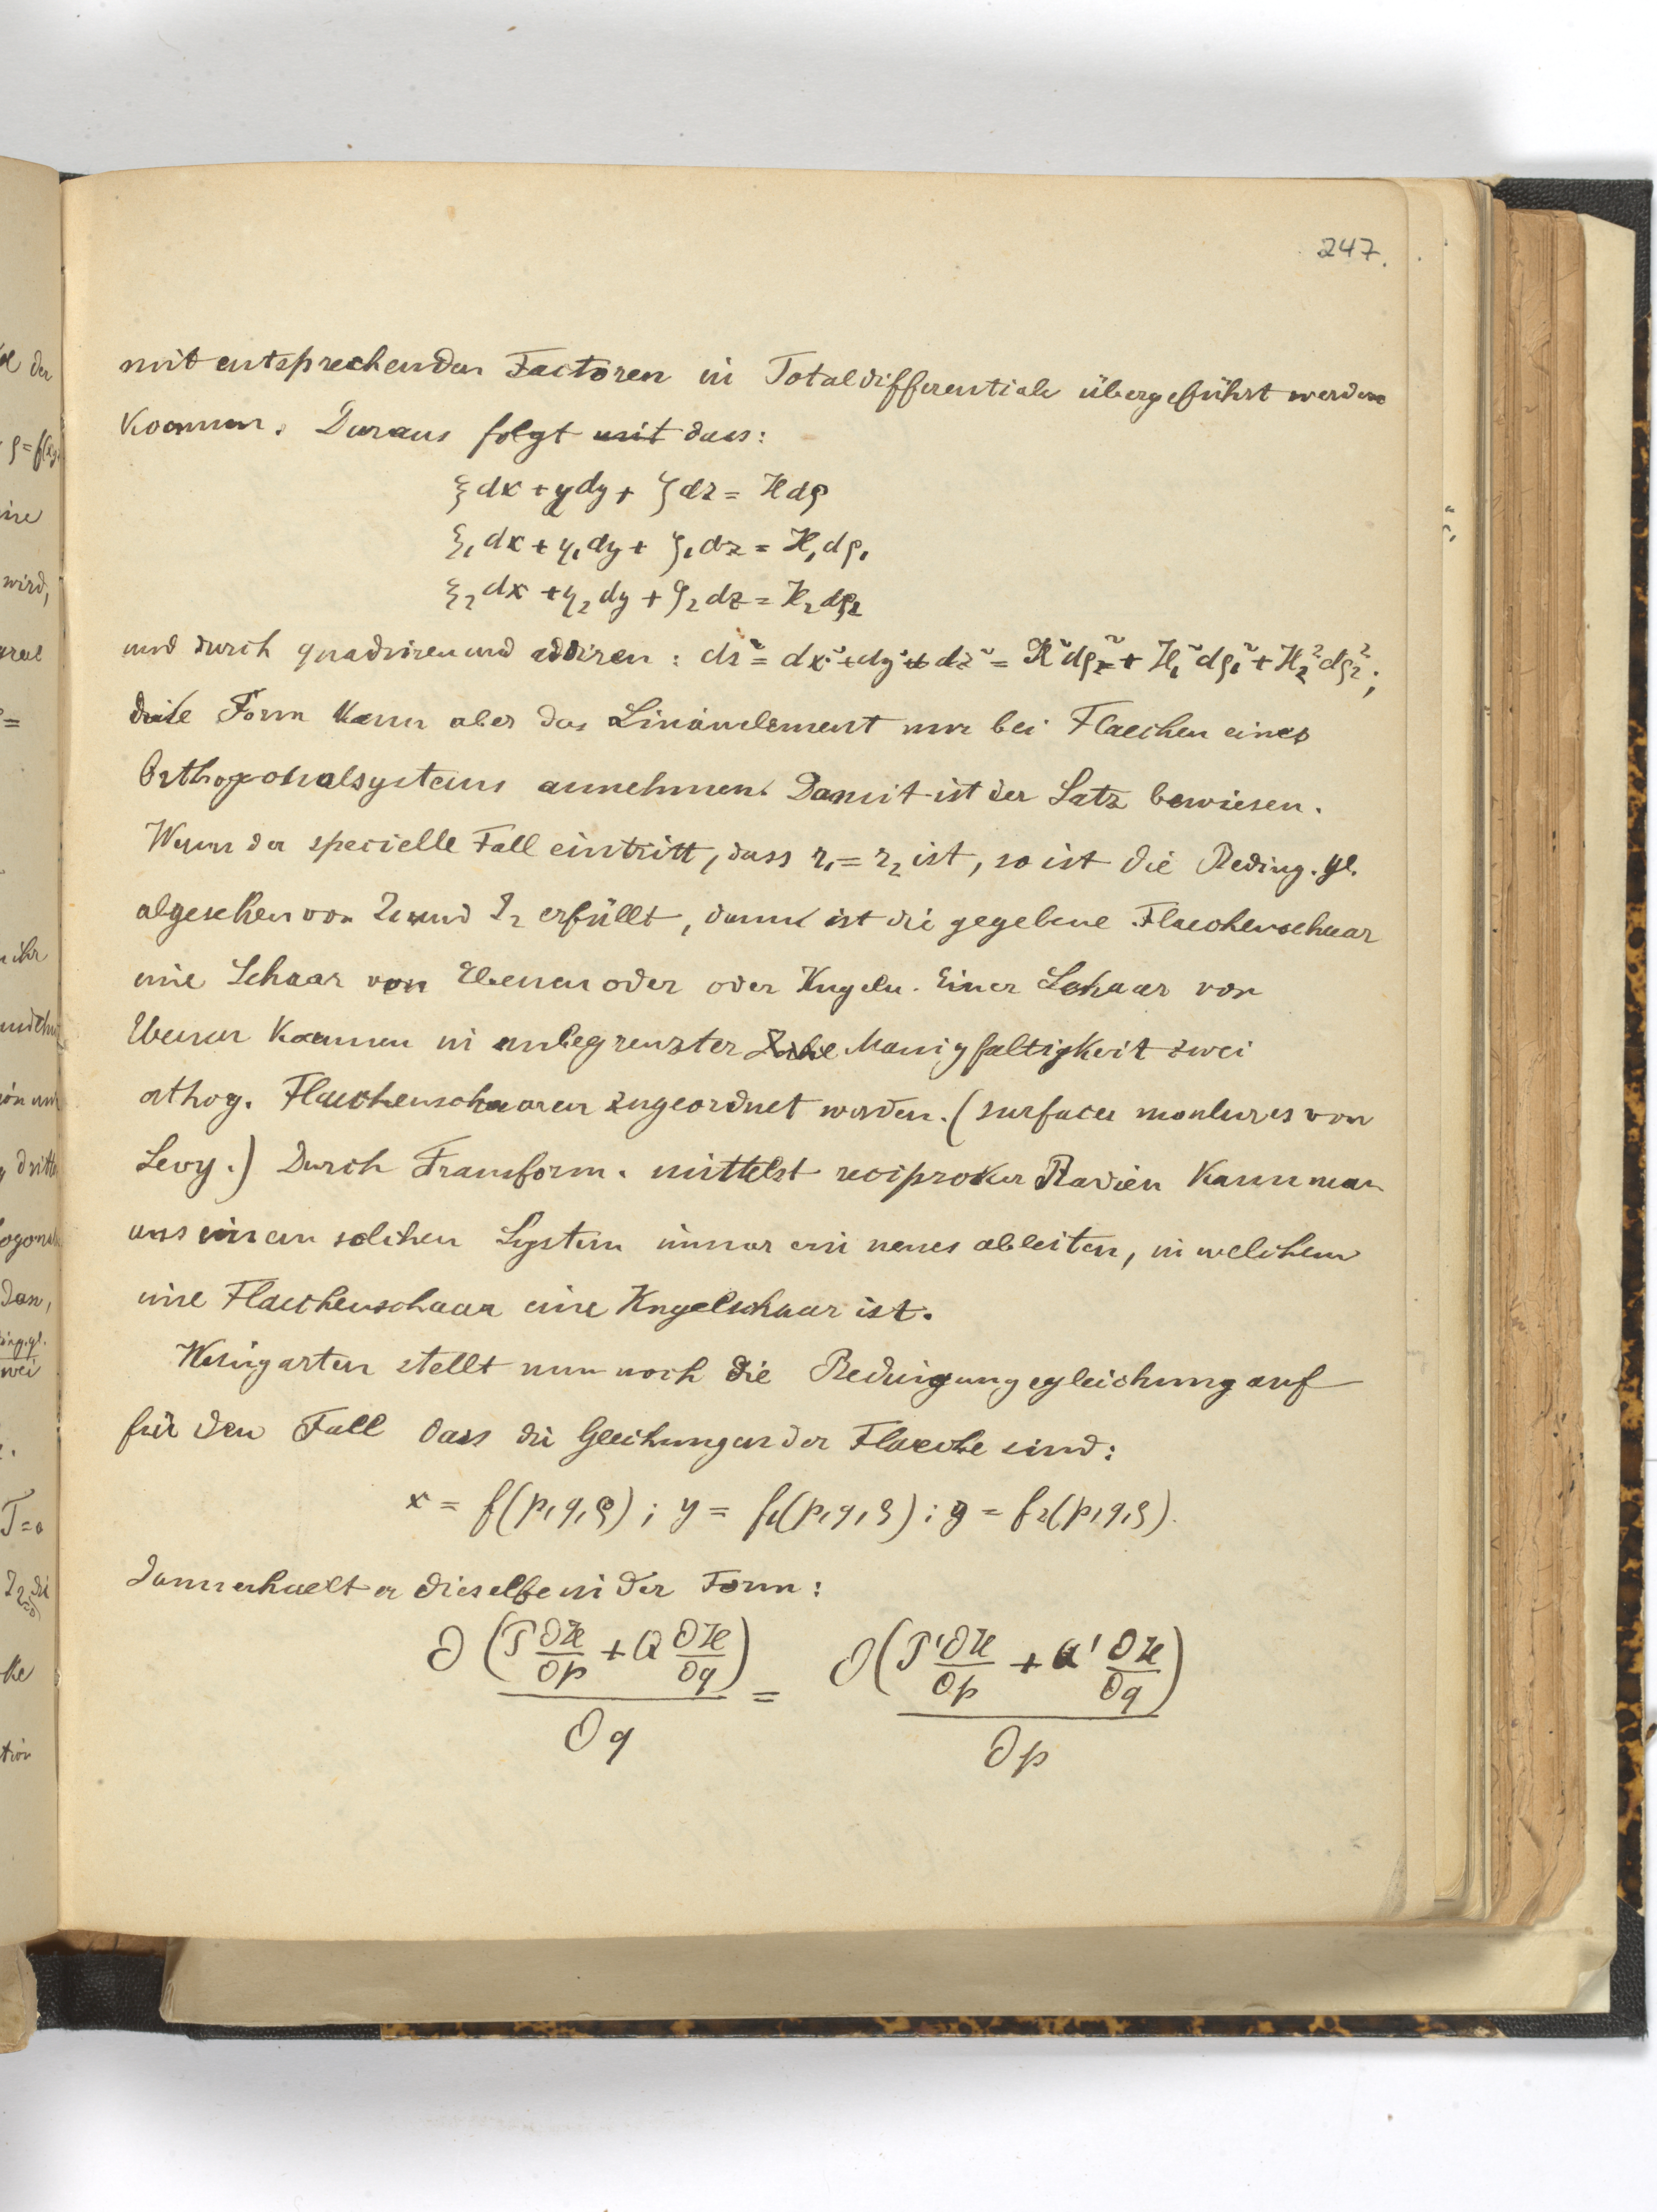 247.
mit entsprechenden Factoren in Totaldifferentiale übergeführt werden
koennen. Daraus folgt mit dass:
ξdx + ηdy + ζdz = Hdρ
ξ₁dx + η₁dy + ζ₁dz = H₁dρ₁
ξ₂dx + η₂dy + ζ₂dz = H₂dρ₂
und durch quadriren und addiren : ds² = dx² + dy² + dz² = H²dρ² + H₁²dρ₁² + H₂²dρ₂²;
diese Form kann aber das Linienelement nur bei Flaechen eines
Orthogonalsystems annehmen. Damit ist der Satz bewiesen.
Wenn der specielle Fall eintritt, dass r₁ = r₂ ist, so ist die Beding. gl.
abgesehen von und erfüllt, dann ist die gegebene Flaechenschaar
eine Schaar von Ebenen oder oder Kugeln. Einer Schaar von
Ebenen koennen in unbegrenzter Manigfaltigkeit zwei
orthog. Flaechenschaaren zugeordnet werden. (surfaces moulures von
Levy.) Durch Transform. mittelst reciproker Radien kann man
aus einem solchen System immer ein neues ableiten, in welchem
eine Flaechenschaar eine Kugelschaar ist.
Weingarten stellt nun noch die Bedingungsgleichung auf
für den Fall dass die Gleichungen der Flaeche sind:
x = f(p,q,ρ) ; y = f₁(p,q,ρ) ; z = f₂(p,q,ρ).
dann erhaelt er dieselbe in der Form:
∂(P ∂H/∂p + Q ∂H/∂q)/∂q = ∂(P' ∂H/∂p + Q' ∂H/∂q)/∂p